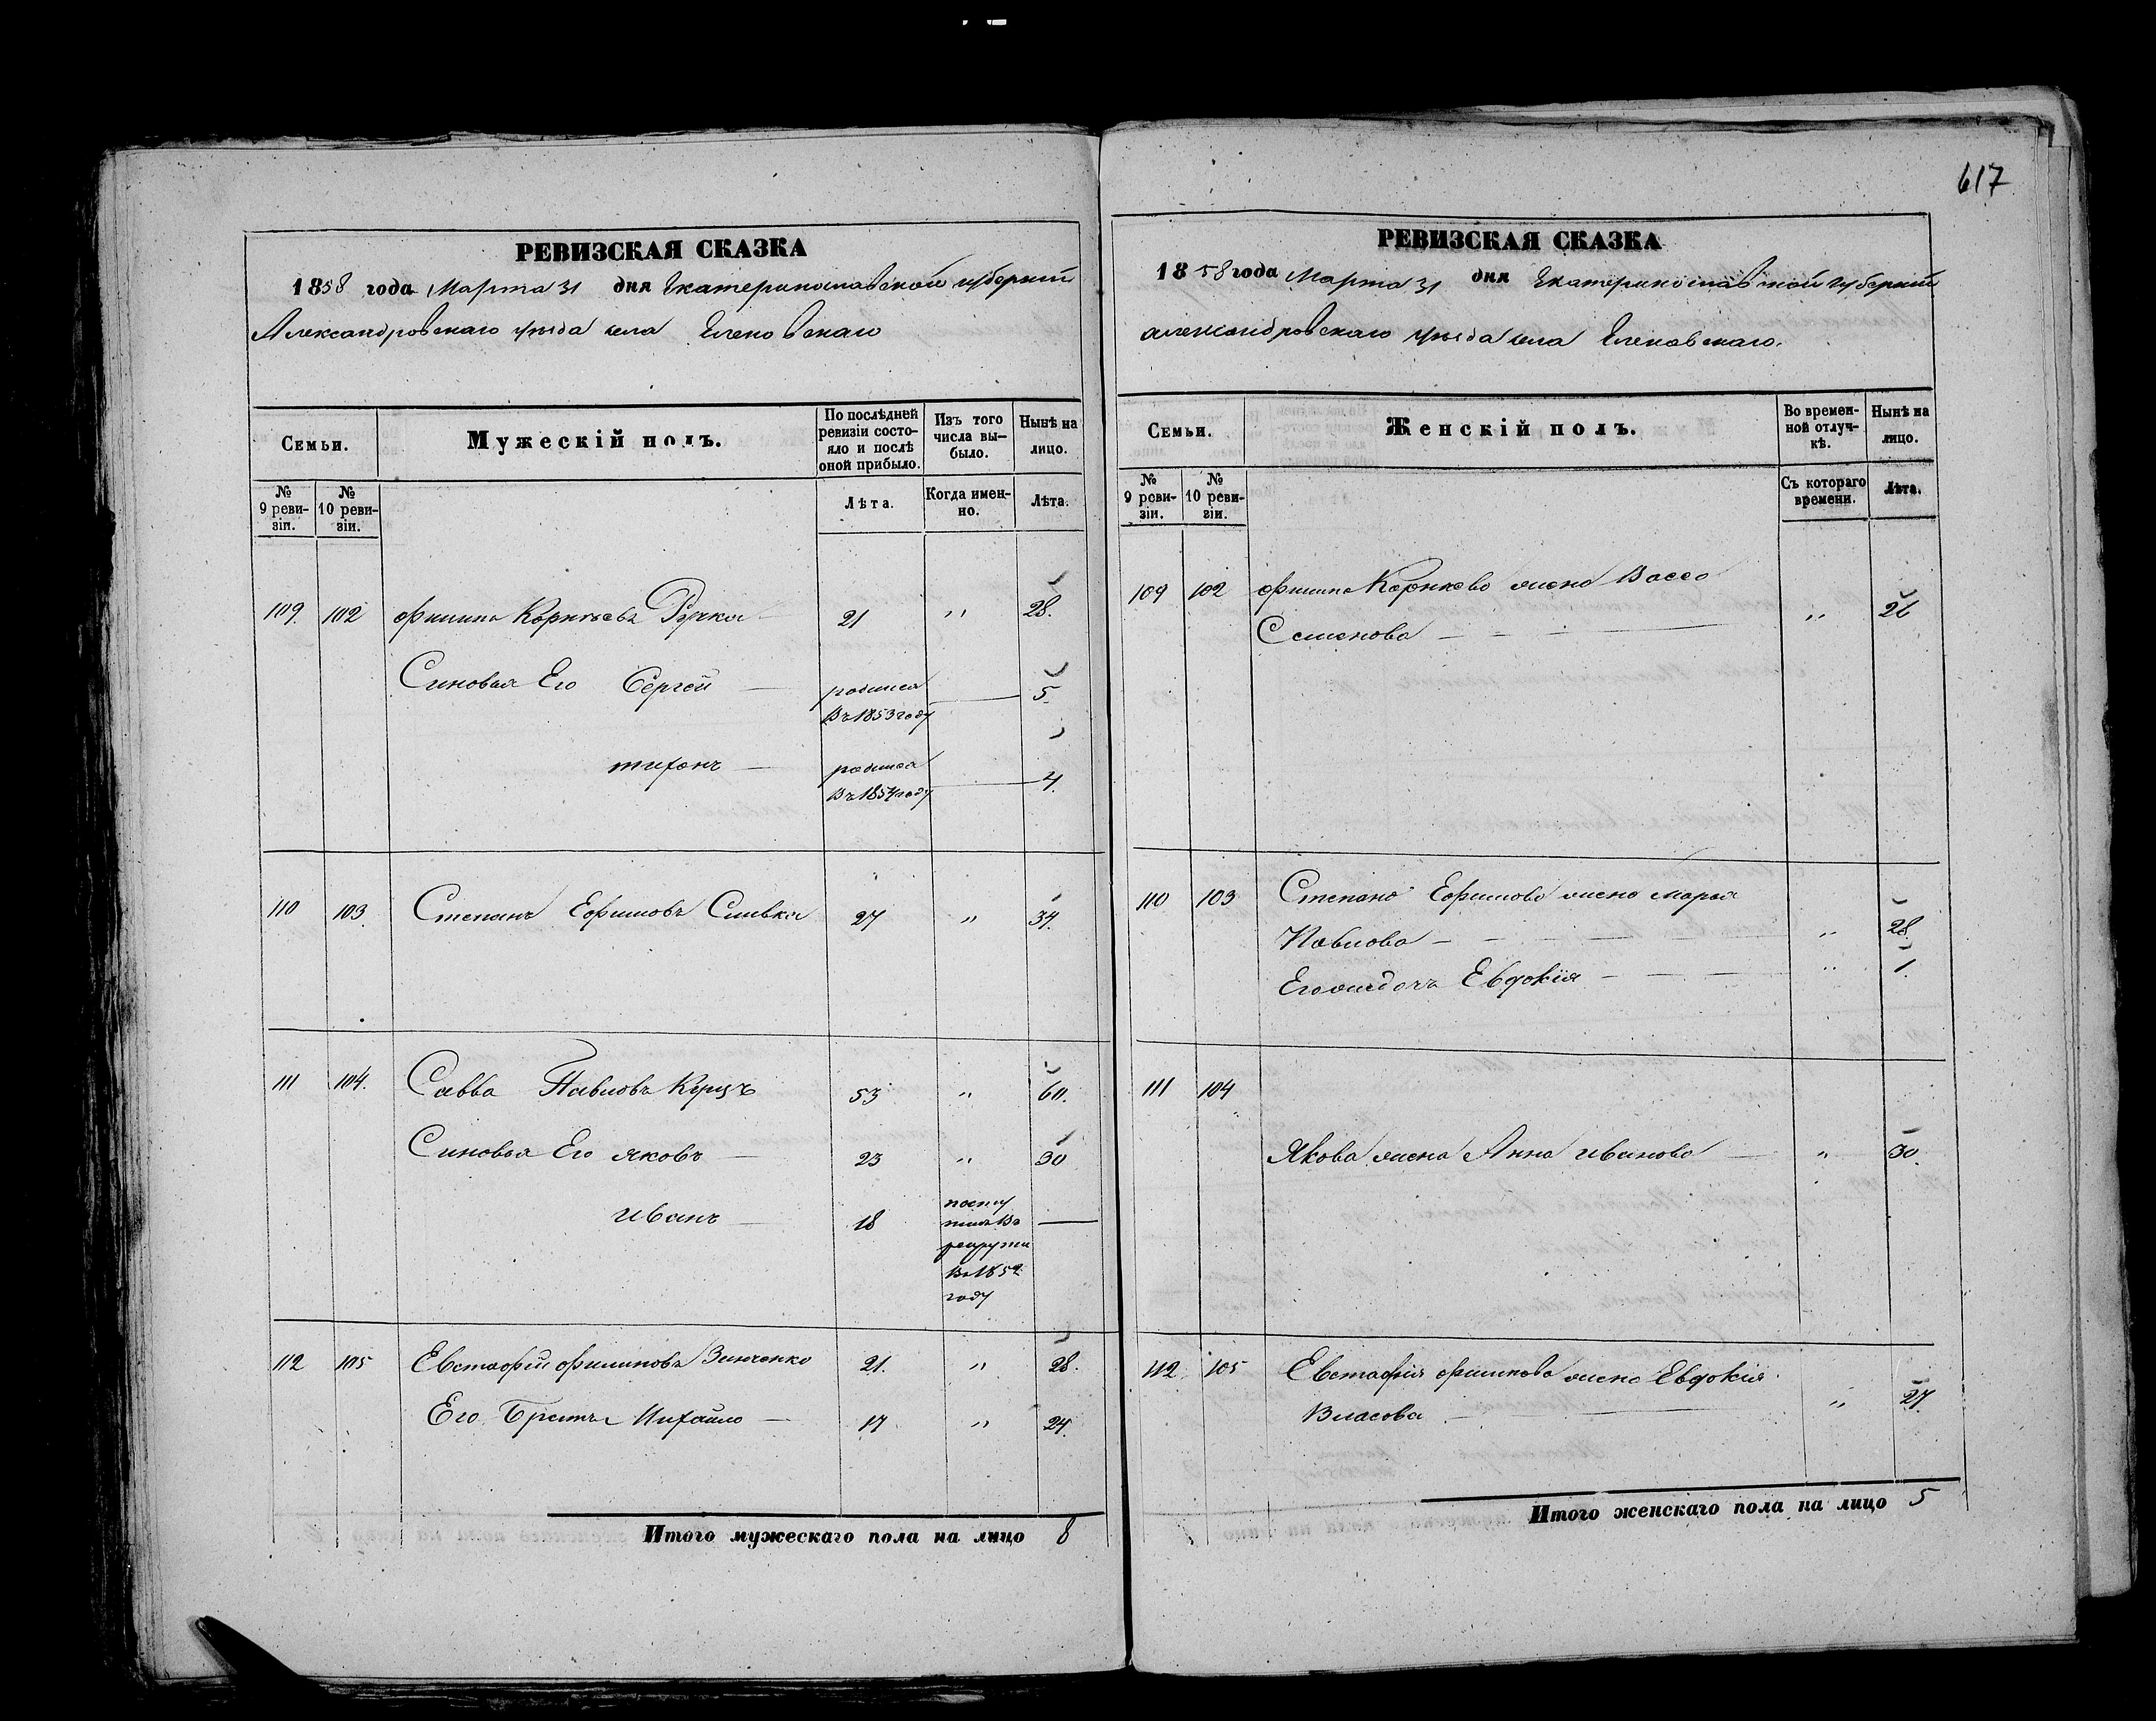 617
РЕВИЗСКАЯ СКАЗКА
1858 года Марта 31 дня Екатеринославской губерніи
Александровскаго уѣзда села Еленовскаго
Семьи.
Мужескій полъ.
По послѣдней ревизіи состояло и послѣ оной прибыло.
Изъ того числа выбыло.
Нынѣ на лицо.
№ 9 ревизіи.
№ 10 ревизіи.
Лѣта.
Когда именно.
Лѣта.
109. 102 Филипъ Корнѣевъ 21 " 28.
Синовья Его Сергей — родился въ 1853 году — 5.
тихонъ — родился въ 1854 году — 4.
110 103. Степанъ Ефимовъ Сливка 27 " 34.
111 104. Савва Павловъ 53 " 60.
Синовья Его яковъ — 23 " 30
иванъ — 18 поступилъ въ рекруты въ 1852 году —
112 105 Евстафій Филиповъ Зинченко 21. " 28.
Его Братъ Михайло — 17 " 24.
Итого мужескаго пола на лицо 8
РЕВИЗСКАЯ СКАЗКА
1858 года Марта 31 дня Екатеринославской губерніи
александровскаго уѣзда села Еленовскаго.
Семьи.
Женскій полъ.
Во временной отлучкѣ.
Нынѣ на лицо.
№ 9 ревизіи.
№ 10 ревизіи.
Съ котораго времени.
Лѣта.
109 102 Филипа Корнѣева жена Васса
Семенова — " 26
110 103 Степана Ефимова жена марья
Павлова — " 28.
Его дочь Евдокія — " 1.
111 104
Якова жена Анна иванова — " 30.
112. 105 Евстафія Филипова жена Евдокія
Власова — " 27.
Итого женскаго пола на лицо 5